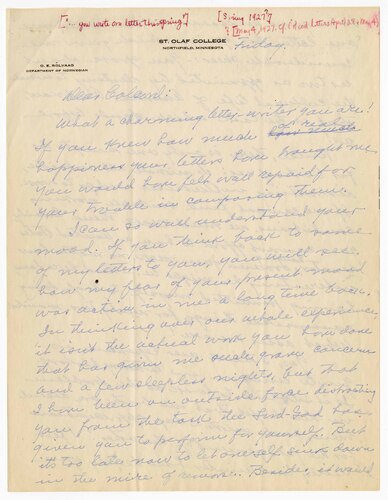 ["... you wrote one letter this spring"]
[Spring 1927?]
? [May 4, 1927. Cf. Colcord letters April 28, May 4]
ST. OLAF COLLEGE
NORTHFIELD, MINNESOTA
Friday.
O. E. RÖLVAAG
DEPARTMENT OF NORWEGIAN
Dear Colcord:
What a charming letter-writer you are!
If you knew how much of real
happiness your letters have brought me
you would have felt well repaid for
your trouble in composing them.
I can so well understand your
mood. If you think back to some
of my letters to you, you will see
how my fear of your present mood
was active in me a long time back.
In thinking over our whole experience
it isn't the actual work you have done
that has given me such grave concern
and a few sleepless nights, but that
I have been an outside force distracting
you from the task the Lord God has
given you to perform for yourself. But
it's too late now to let oneself sink down
in the mire of remorse. Besides, it would